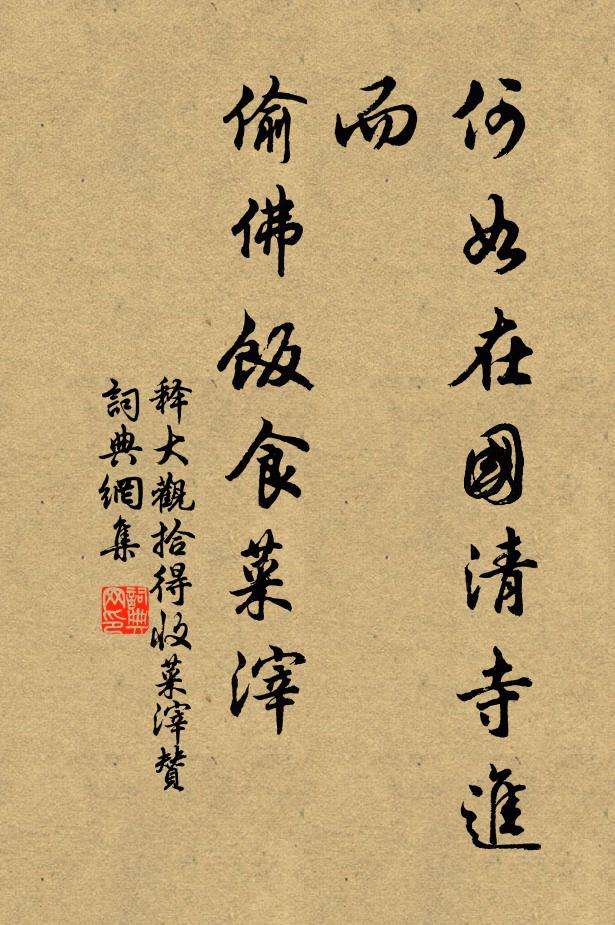 何如在國清寺進
而
偷佛飯食菜滓
释大觀拾得收菜滓贊
詞典網集
詞典網印